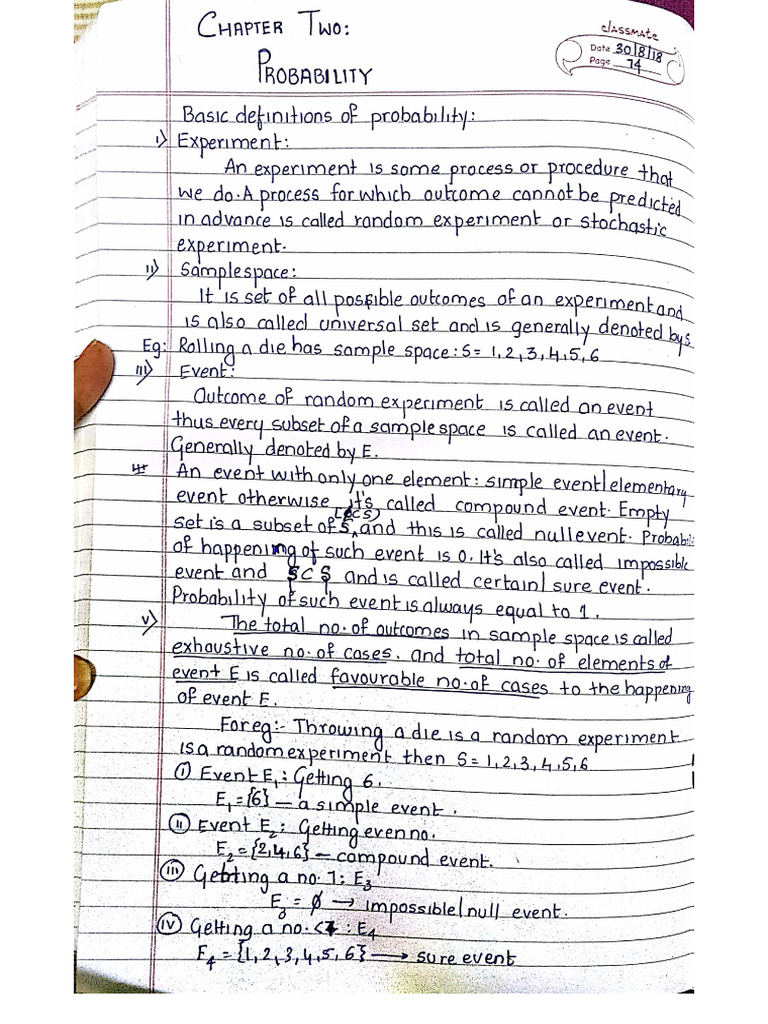 CHAPTER TWO:
classmate
Date 30/8/18
Page 14
PROBABILITY
Basic definitions of probability:
i) Experiment:
An experiment is some process or procedure that
we do. A process for which outcome cannot be predicted
in advance is called random experiment or stochastic
experiment.
ii) Sample space:
It is set of all possible outcomes of an experiment and
is also called universal set and is generally denoted by s
Eg: Rolling a die has sample space: S= 1,2,3,4,5,6
iii) Event:
Outcome of random experiment is called an event
thus every subset of a sample space is called an event.
Generally denoted by E.
An event with only one element: simple event/elementary
event otherwise it's called compound event. Empty
set is a subset of S, (∅⊂S) and this is called null event. Probabi-
of happening of such event is 0. It's also called impossible
event and S⊂S and is called certain/sure event.
Probability of such event is always equal to 1.
v) The total no. of outcomes in sample space is called
exhaustive no. of cases. and total no. of elements of
event E is called favourable no. of cases to the happening
of event E.
For eg:- Throwing a die is a random experiment
is a random experiment then S= 1,2,3,4,5,6
(i) Event E₁: Getting 6.
E₁={6} — a simple event.
(ii) Event E₂: Getting even no.
E₂={2,4,6} — compound event.
(iii) Getting a no. 7: E₃
E₃ = ∅ → impossible/null event.
(iv) Getting a no. <7 : E₄
E₄ = {1,2,3,4,5,6} → sure event